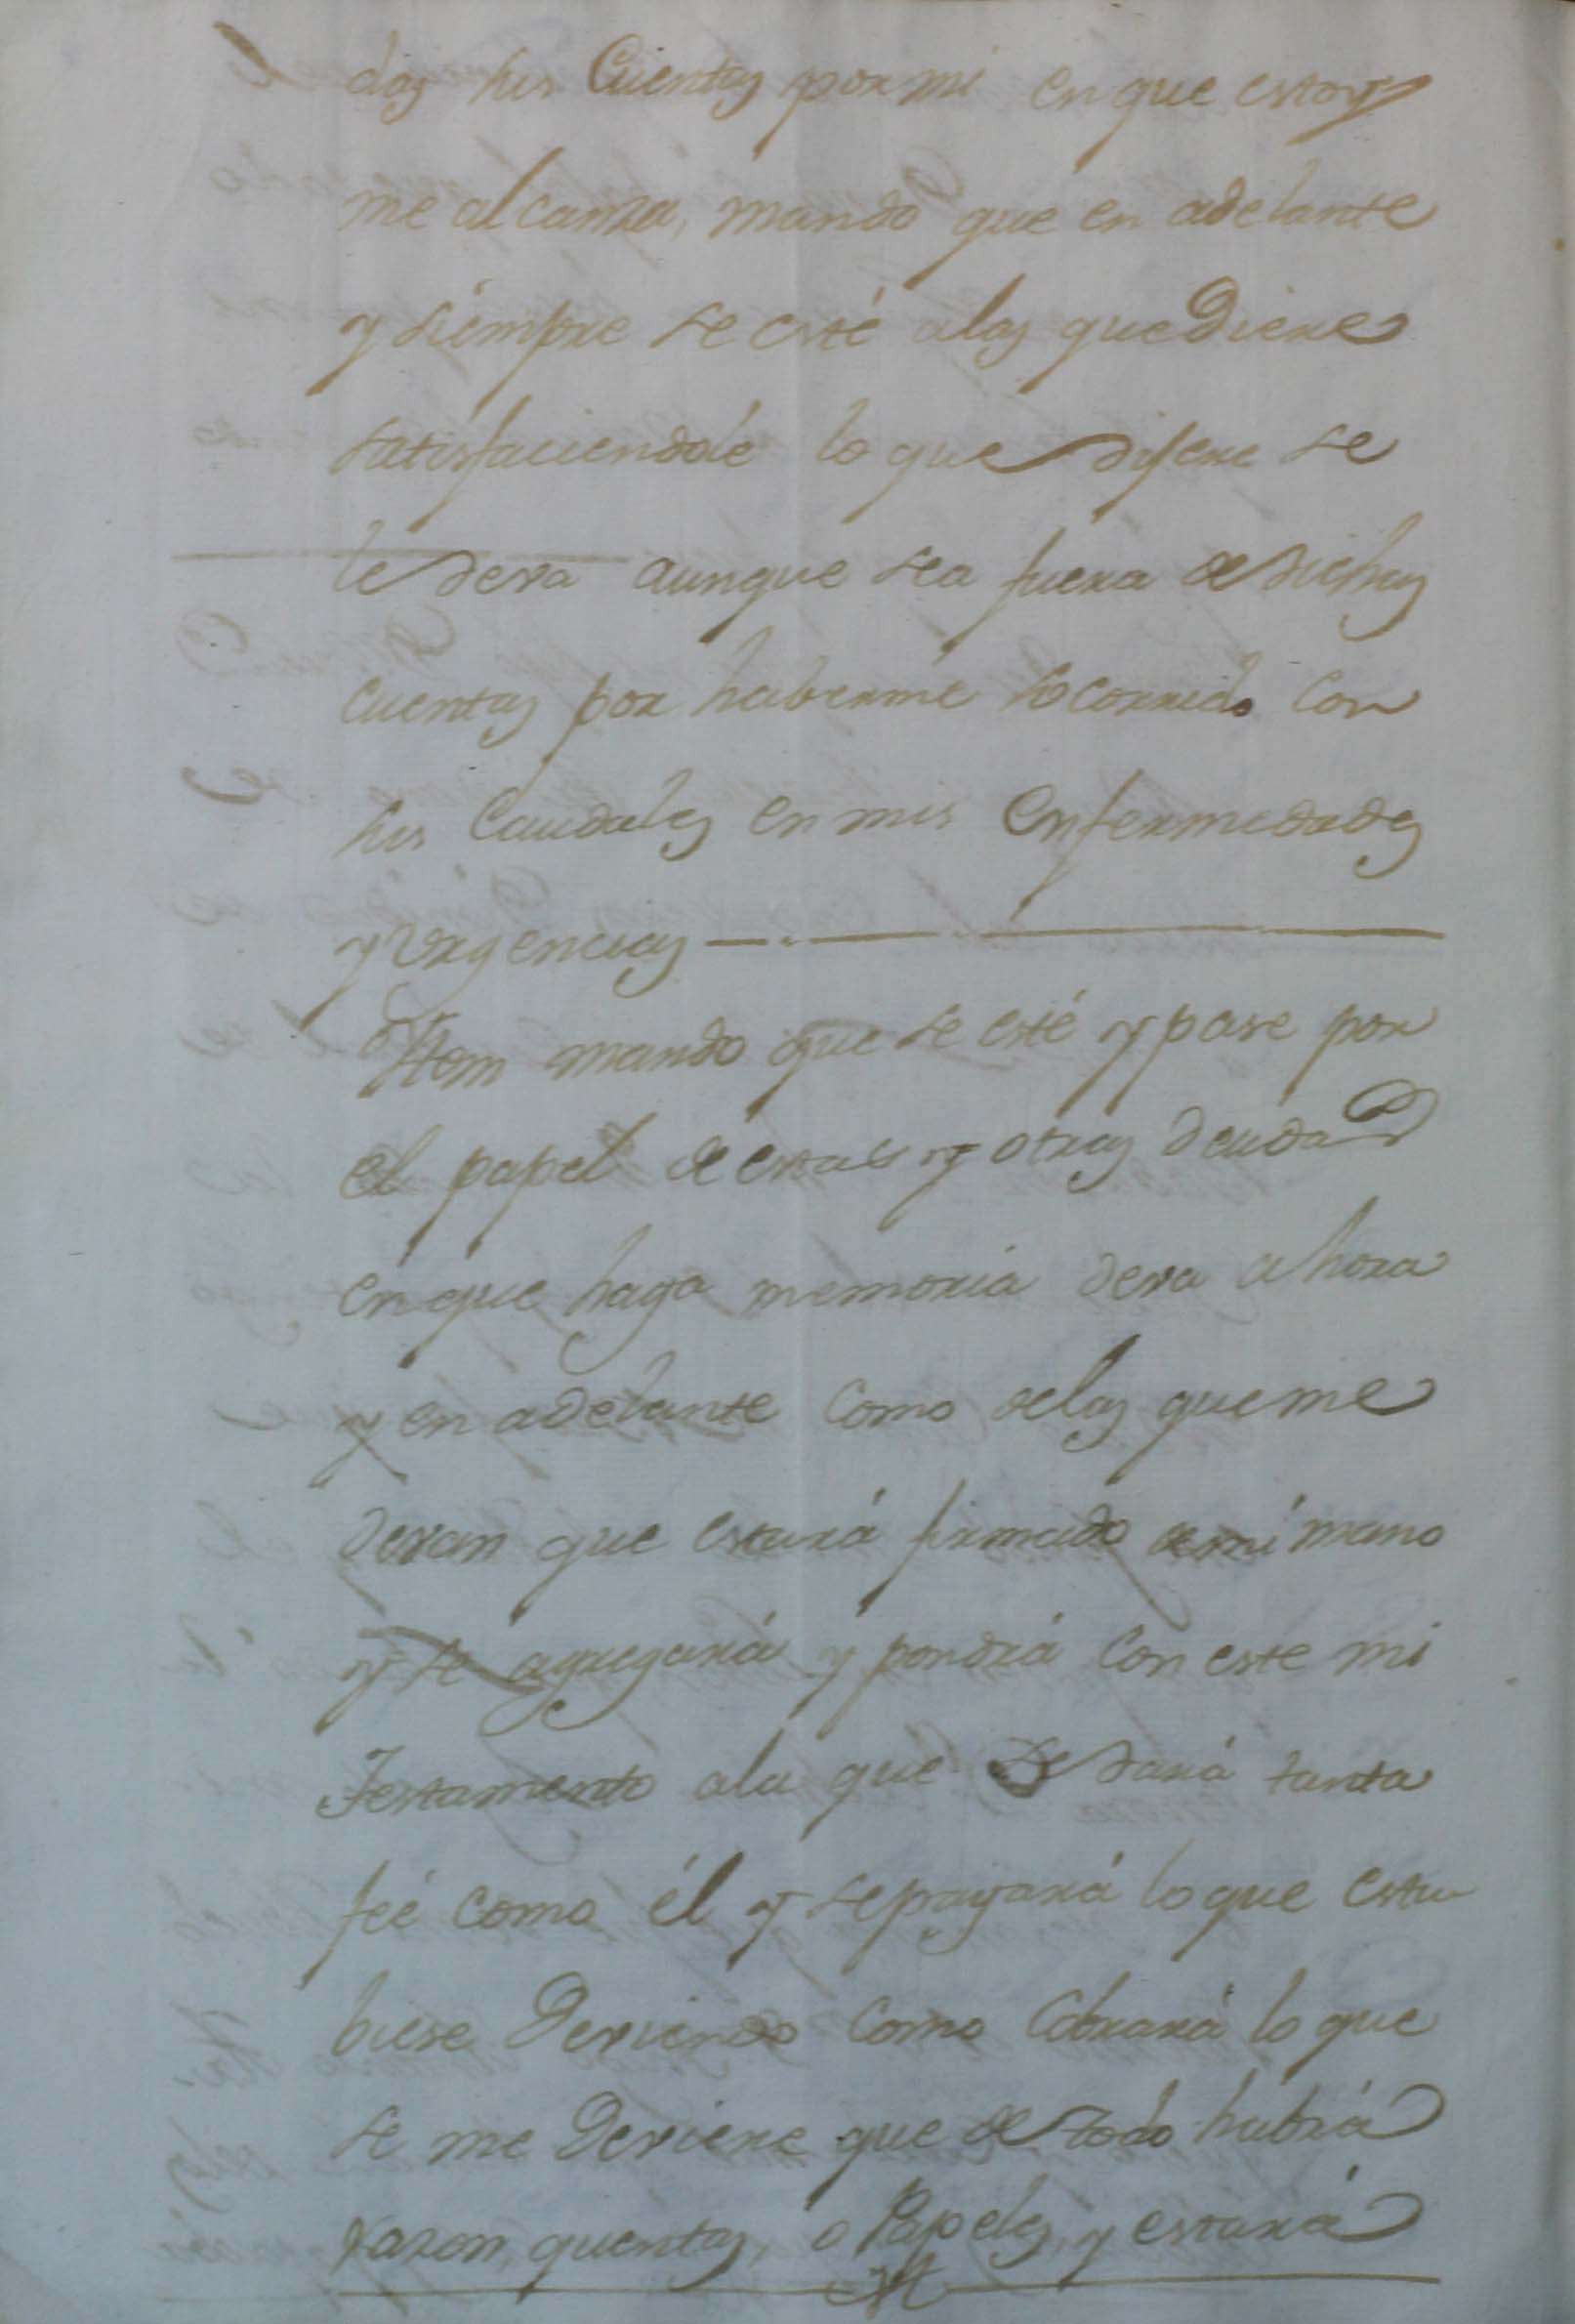 das sus Cuentas por mi en que estoy
me alcanza, mando que en adelante
y siempre se esté alas que Diere
satisfaciendole lo que dijere se
le deva aunque sea fuera de dichas
cuentas por haberme socorrido con
sus Caudales en mis enfermedades
y Urgencias
Ytem mando que se esté y pase por
el papel de estas y otras deudas
en que haga memoria deva ahora
y en adelante como delas que me
devan que estará firmado de mi mano
y se agregará y pondrá con este mi
Testamento ala que se dará tanta
feé como él y se pagará lo que estu
biese Deviendo como Cobrará lo que
se me Deviere que de todo habrá
razon, quentas, o Papeles, y estará